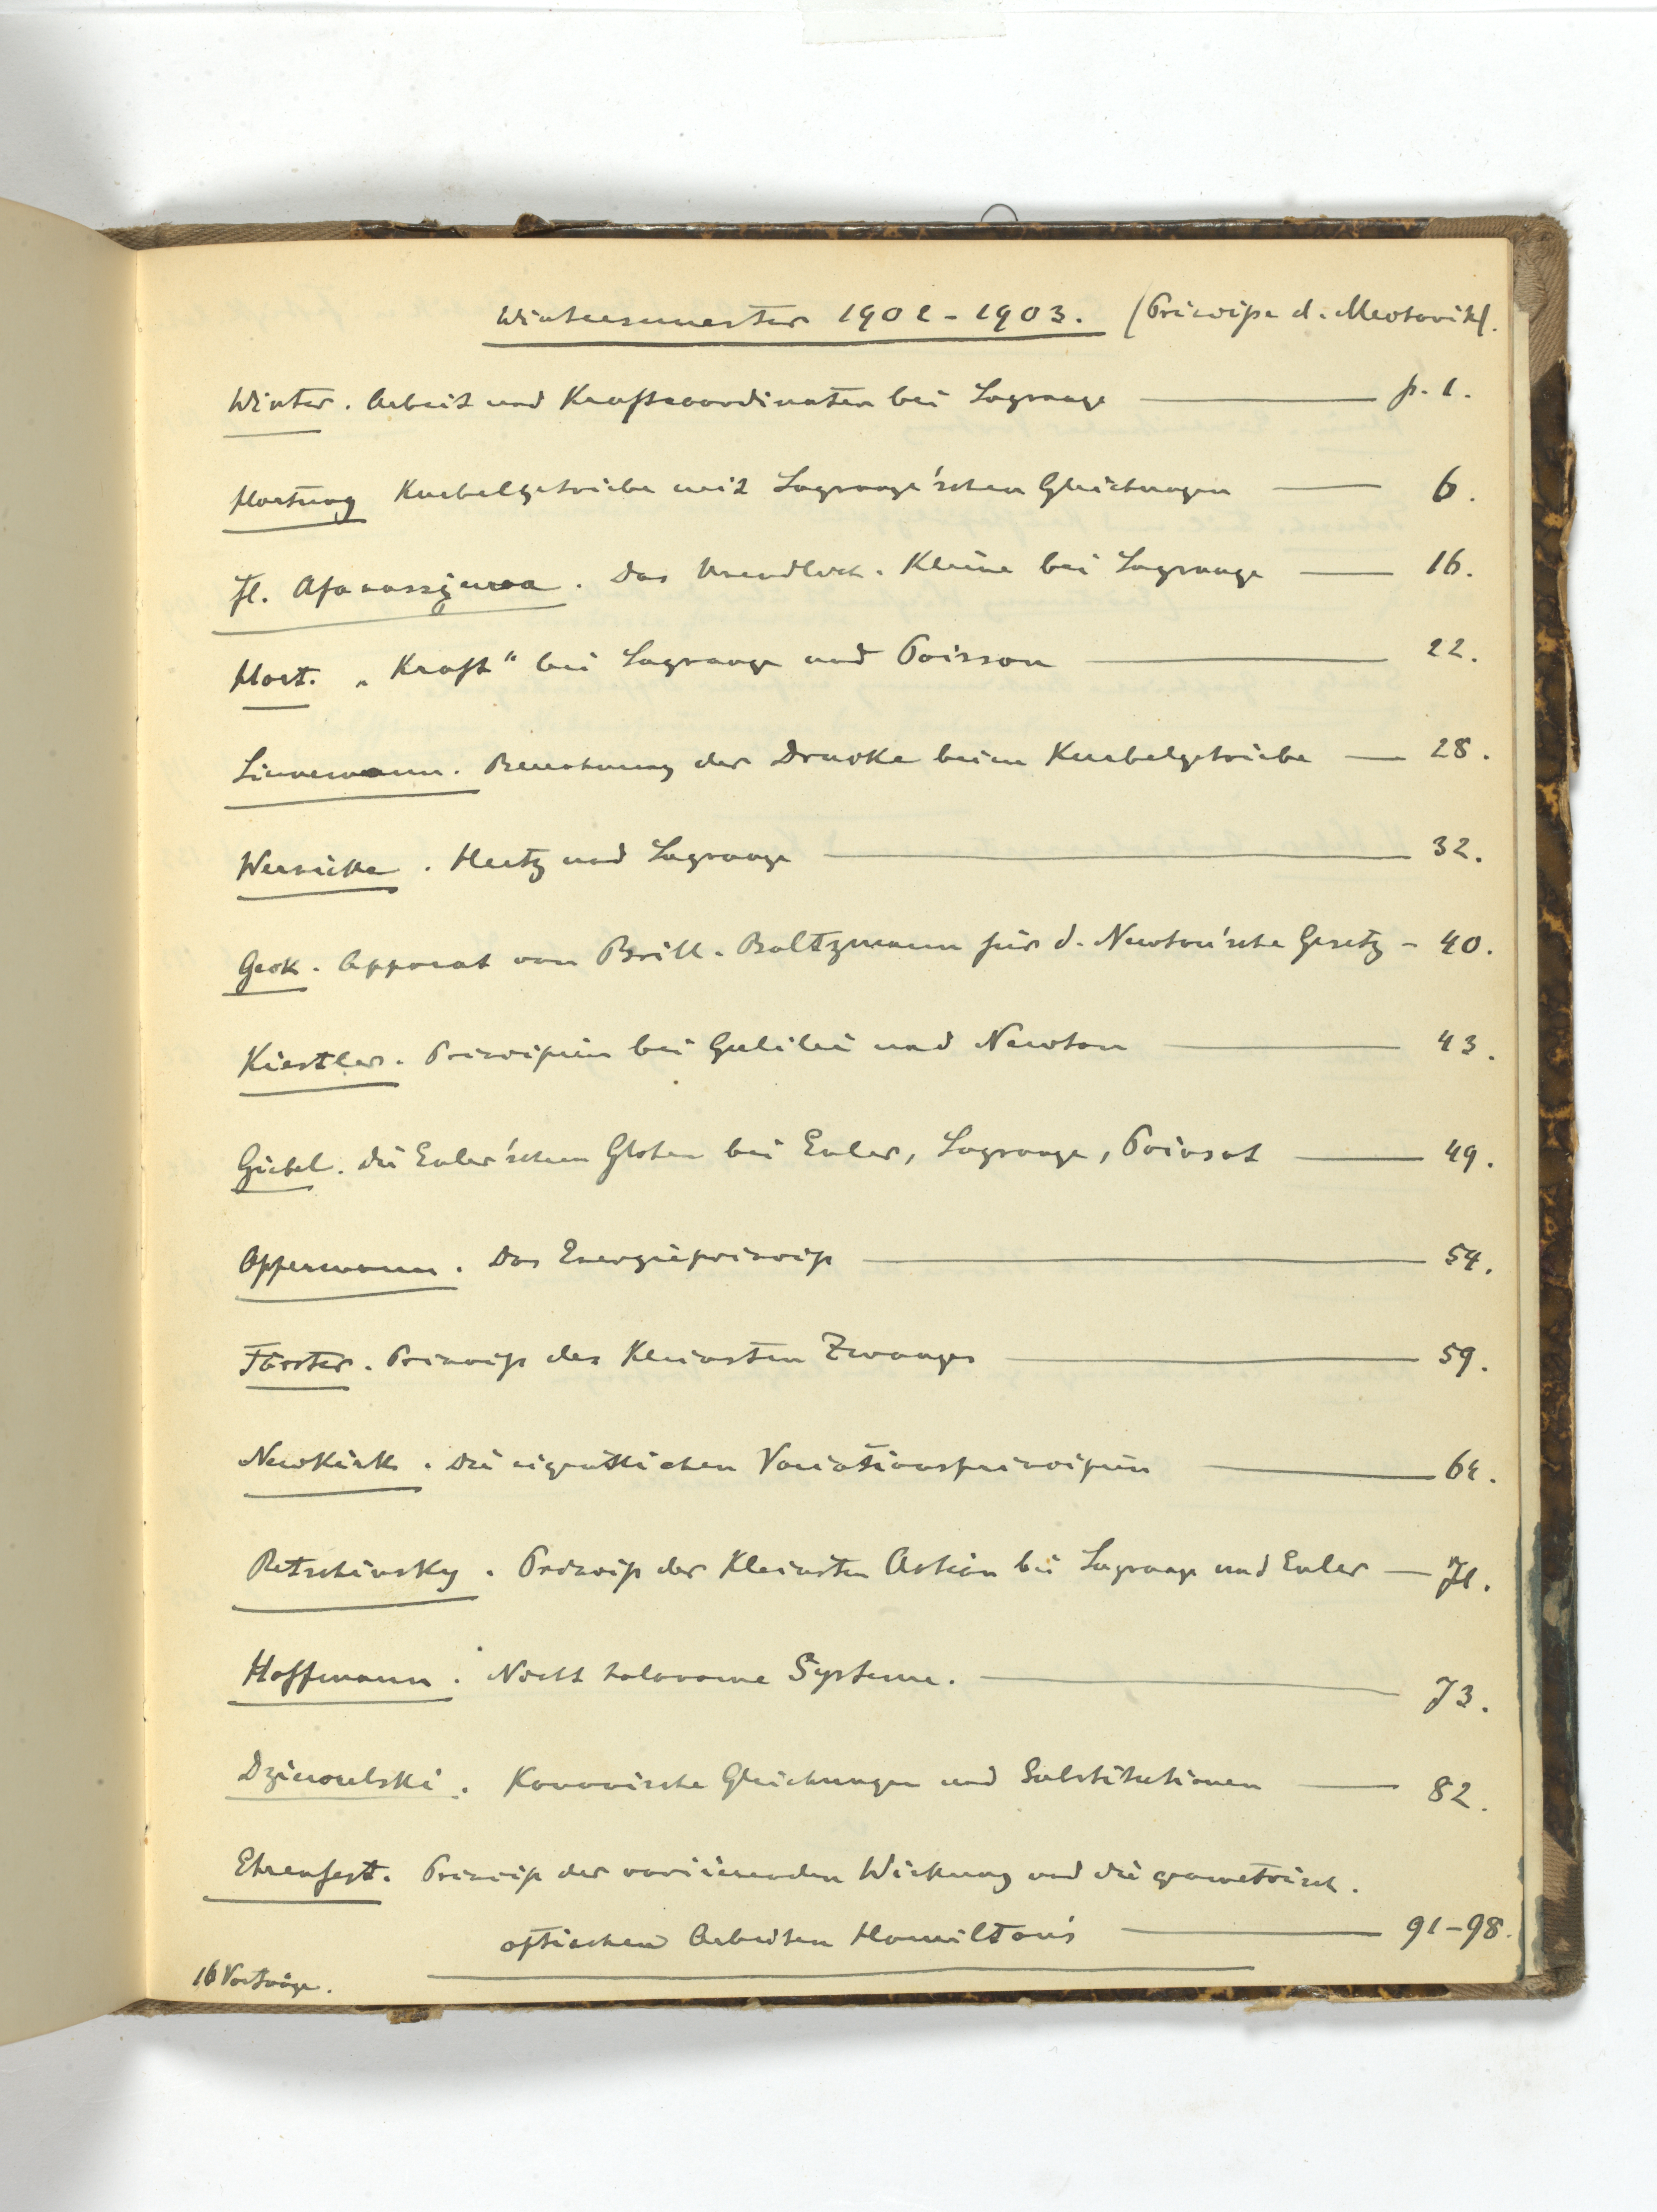 Wintersemester 1902-1903. (Principe d. Mechanik).
Winter. Arbeit und Kraftcoordinaten bei Lagrange p. 1.
Hartung Kurbelgetriebe mit Lagrange'schen Gleichungen 6.
Fl. Afanassjewa. Das Unendlich. Kleine bei Lagrange 16.
Hort. „Kraft" bei Lagrange und Poisson 22.
Linnemann. Berechnung der Drucke beim Kurbelgetriebe 28.
Wernicke. Hertz und Lagrange 32.
Apparat von Brill. Boltzmann für d. Newton'sche Gesetz - 40.
Kistler. Principien bei Galilei und Newton 43.
Giebel. Die Euler'schen Glchen bei Euler, Lagrange, Poinsot 49.
Oppermann. Das Energieprincip 54.
Förster. Princip des Kleinsten Zwanges 59.
Newkirk. Die eigentlichen Variationsprincipien 64.
Retschinsky. Princip der Kleinsten Action bei Lagrange und Euler 71.
Hoffmann. Nicht holonome Systeme. 73.
Dziewulski. Kanonische Gleichungen und Substitutionen 82.
Ehrenfest. Princip der variierenden Wirkung und die geometrisch.
optischen Arbeiten Hamilton's 91-98.
16 Vorträge.